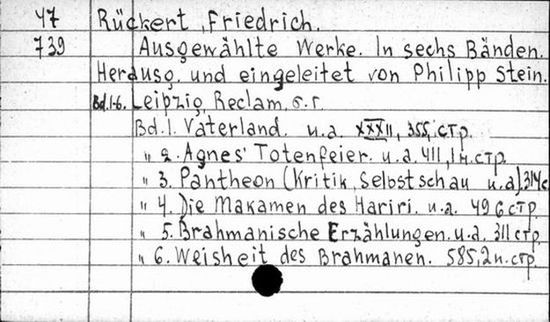 47 Rückert, Friedrich.
739 Ausgewählte Werke. In sechs Bänden.
Herausg. und eingeleitet von Philipp Stein.
Bd.1-6. Leipzig, Reclam, б.г.
Bd.1. Vaterland. u.a. XXXII, 355, стр.
" 2. Agnes' Totenfeier. u.a. 411, 1 н.стр.
" 3. Pantheon (Kritik, Selbstschau u.a). 314 с
" 4. Die Makamen des Hariri. u.a. 496 стр.
" 5. Brahmanische Erzählungen. u.a. 311 стр.
" 6. Weisheit des Brahmanen. 585, 2 н. стр.